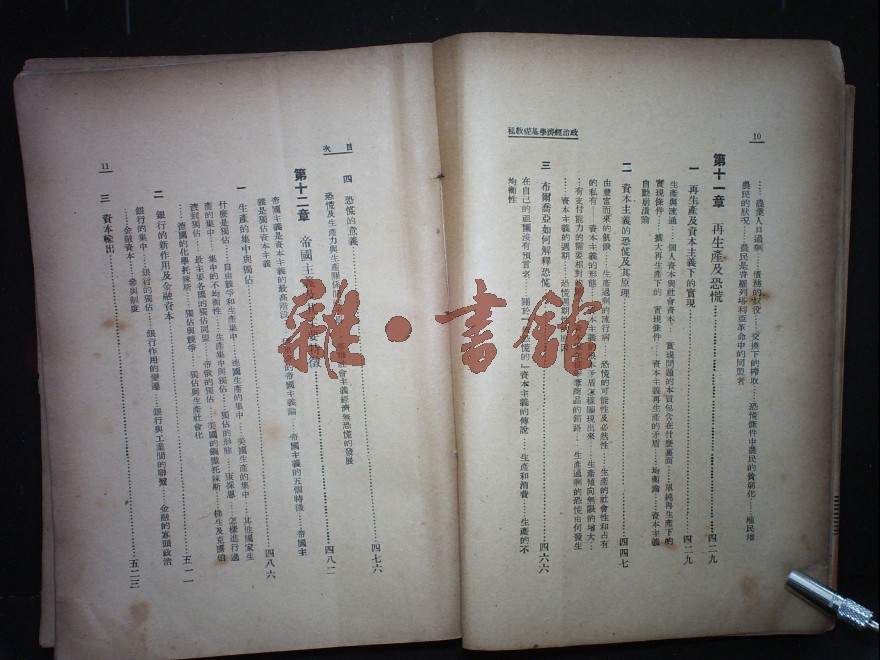 政治經濟學基礎教程
10
農業人口過剩……債務的奴役……交換下的榨取……恐慌條件中農民的貧窮化……殖民地
農民的狀況……農民是普羅列塔利亞革命中的同盟者
第十一章 再生產及恐慌……四二九
一 再生產及資本主義下的實現……四二九
生產與流通……個人資本與社會資本……實現問題的本質包含在什麼裏面……單純再生產下的
實現條件……擴大再生產下的實現條件……資本主義再生產的矛盾……均衡論……資本主義
自動崩潰論
二 資本主義的恐慌及其原理……四四七
由豐富而來的飢餓……生產過剩的流行病……恐慌的可能性及必然性……生產的社會性和占有
的私有……資本主義的形態……資本主義的根本矛盾怎樣顯現出來……生產傾向無限的增大…
…有支付能力的需要相對的……商品的銷路……生產過剩的恐慌由何發生
……資本主義的週期……恐慌週期性的原因
三 布爾喬亞如何解釋恐慌……四六六
在自己的祖國沒有預言者……關於「無恐慌的」資本主義的傳說……生產和消費……生產的不
均衡性
目次
11
四 恐慌的意義……四七六
恐慌及生產力與生產關係間……社會主義經濟無恐慌的發展
第十二章 帝國主義及其主要特徵……四八二
帝國主義是資本主義的最高階段……的帝國主義論……帝國主義的五個特徵……帝國主
義是獨佔資本主義
一 生產的集中與獨佔……四八六
什麼是獨佔……自由競爭和生產集中……德國生產的集中……美國生產的集中……其他國家生
產的集中……集中的不均衡性……生產集中與獨佔……獨佔的形態……怎樣進行過
渡到獨佔……最主要各國的獨佔同盟……帝俄的獨佔……美國的鋼鐵托辣斯
……德國的化學托辣斯……獨佔與競爭……獨佔與生產社會化
二 銀行的新作用及金融資本……五一一
銀行的集中……銀行的獨佔……銀行作用的變遷……銀行與工業間的聯繫……金融的寡頭政治
……金融資本……參與制度
三 資本輸出……五二三
雜·書館